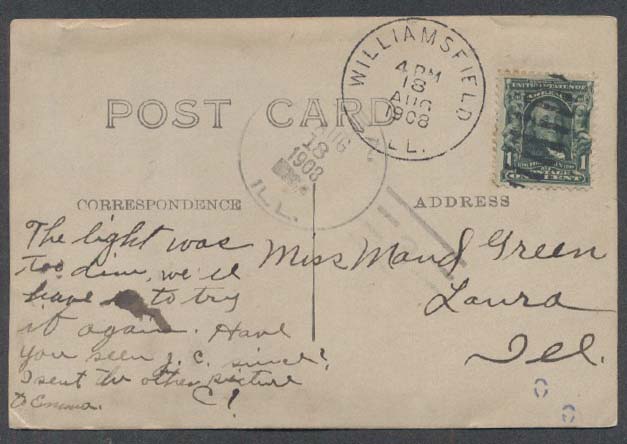 WILLIAMSFIELD
4 PM
18
AUG
1908
ILL.
UNITED STATES OF
AMERICA
1 1
POSTAGE
CENT
POST CARD
AUG
18
1908
ILL.
CORRESPONDENCE
ADDRESS
The light was
too dim, we'll
have to try
it again. Have
you seen J. C. since?
I sent the other picture
to Emma. C!
Miss Maud Green
Laura
Ill.